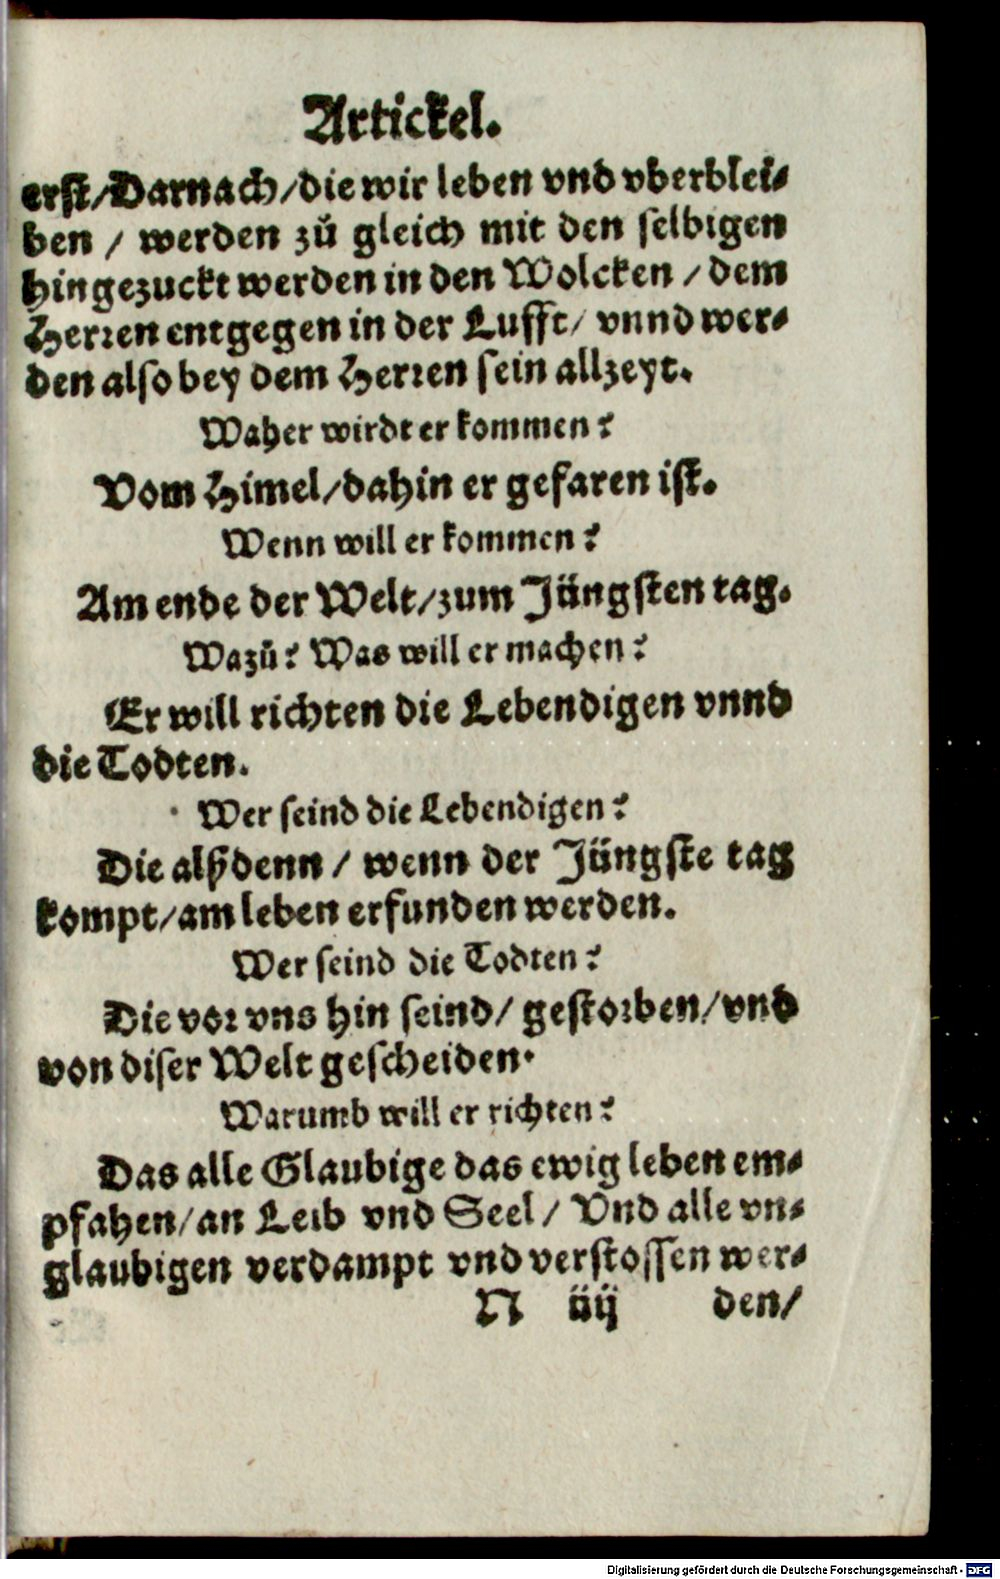 Artickel.
erst/Darnach/die wir leben vnd vberblei-
ben / werden zů gleich mit den selbigen
hingezuckt werden in den Wolcken / dem
Herren entgegen in der Lufft/ vnnd wer-
den also bey dem Herren sein allzeyt.
Waher wirdt er kommen?
Vom Himel/dahin er gefaren ist.
Wenn will er kommen?
Am ende der Welt/zum Jüngsten tag.
Wazů? Was will er machen?
Er will richten die Lebendigen vnnd
die Todten.
Wer seind die Lebendigen?
Die alßdenn / wenn der Jüngste tag
kompt/am leben erfunden werden.
Wer seind die Todten?
Die vor vns hin seind/ gestorben/vnd
von diser Welt gescheiden.
Warumb will er richten?
Das alle Glaubige das ewig leben em-
pfahen/an Leib vnd Seel/ Vnd alle vn-
glaubigen verdampt vnd verstossen wer-
N iiij den/
Digitalisierung gefördert durch die Deutsche Forschungsgemeinschaft - DFG